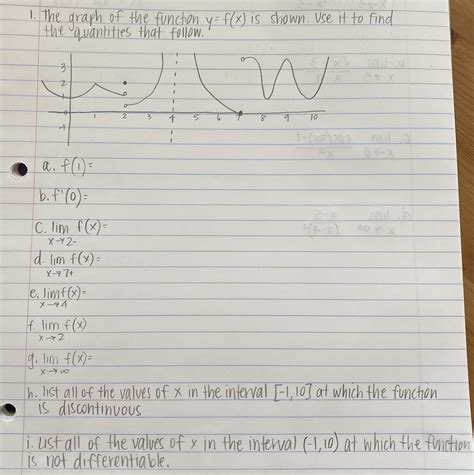 1. The graph of the function y=f(x) is shown. Use it to find
the quantities that follow.
3
2
1
-1
1 2 3 4 5 6 7 8 9 10
a. f(1)=
b. f'(0)=
c. lim f(x)=
x→2-
d. lim f(x)=
x→7+
e. lim f(x)=
x→4
f. lim f(x)
x→2
g. lim f(x)=
x→∞
h. list all of the values of x in the interval [-1,10] at which the function
is discontinuous
i. List all of the values of x in the interval (-1,10) at which the function
is not differentiable.